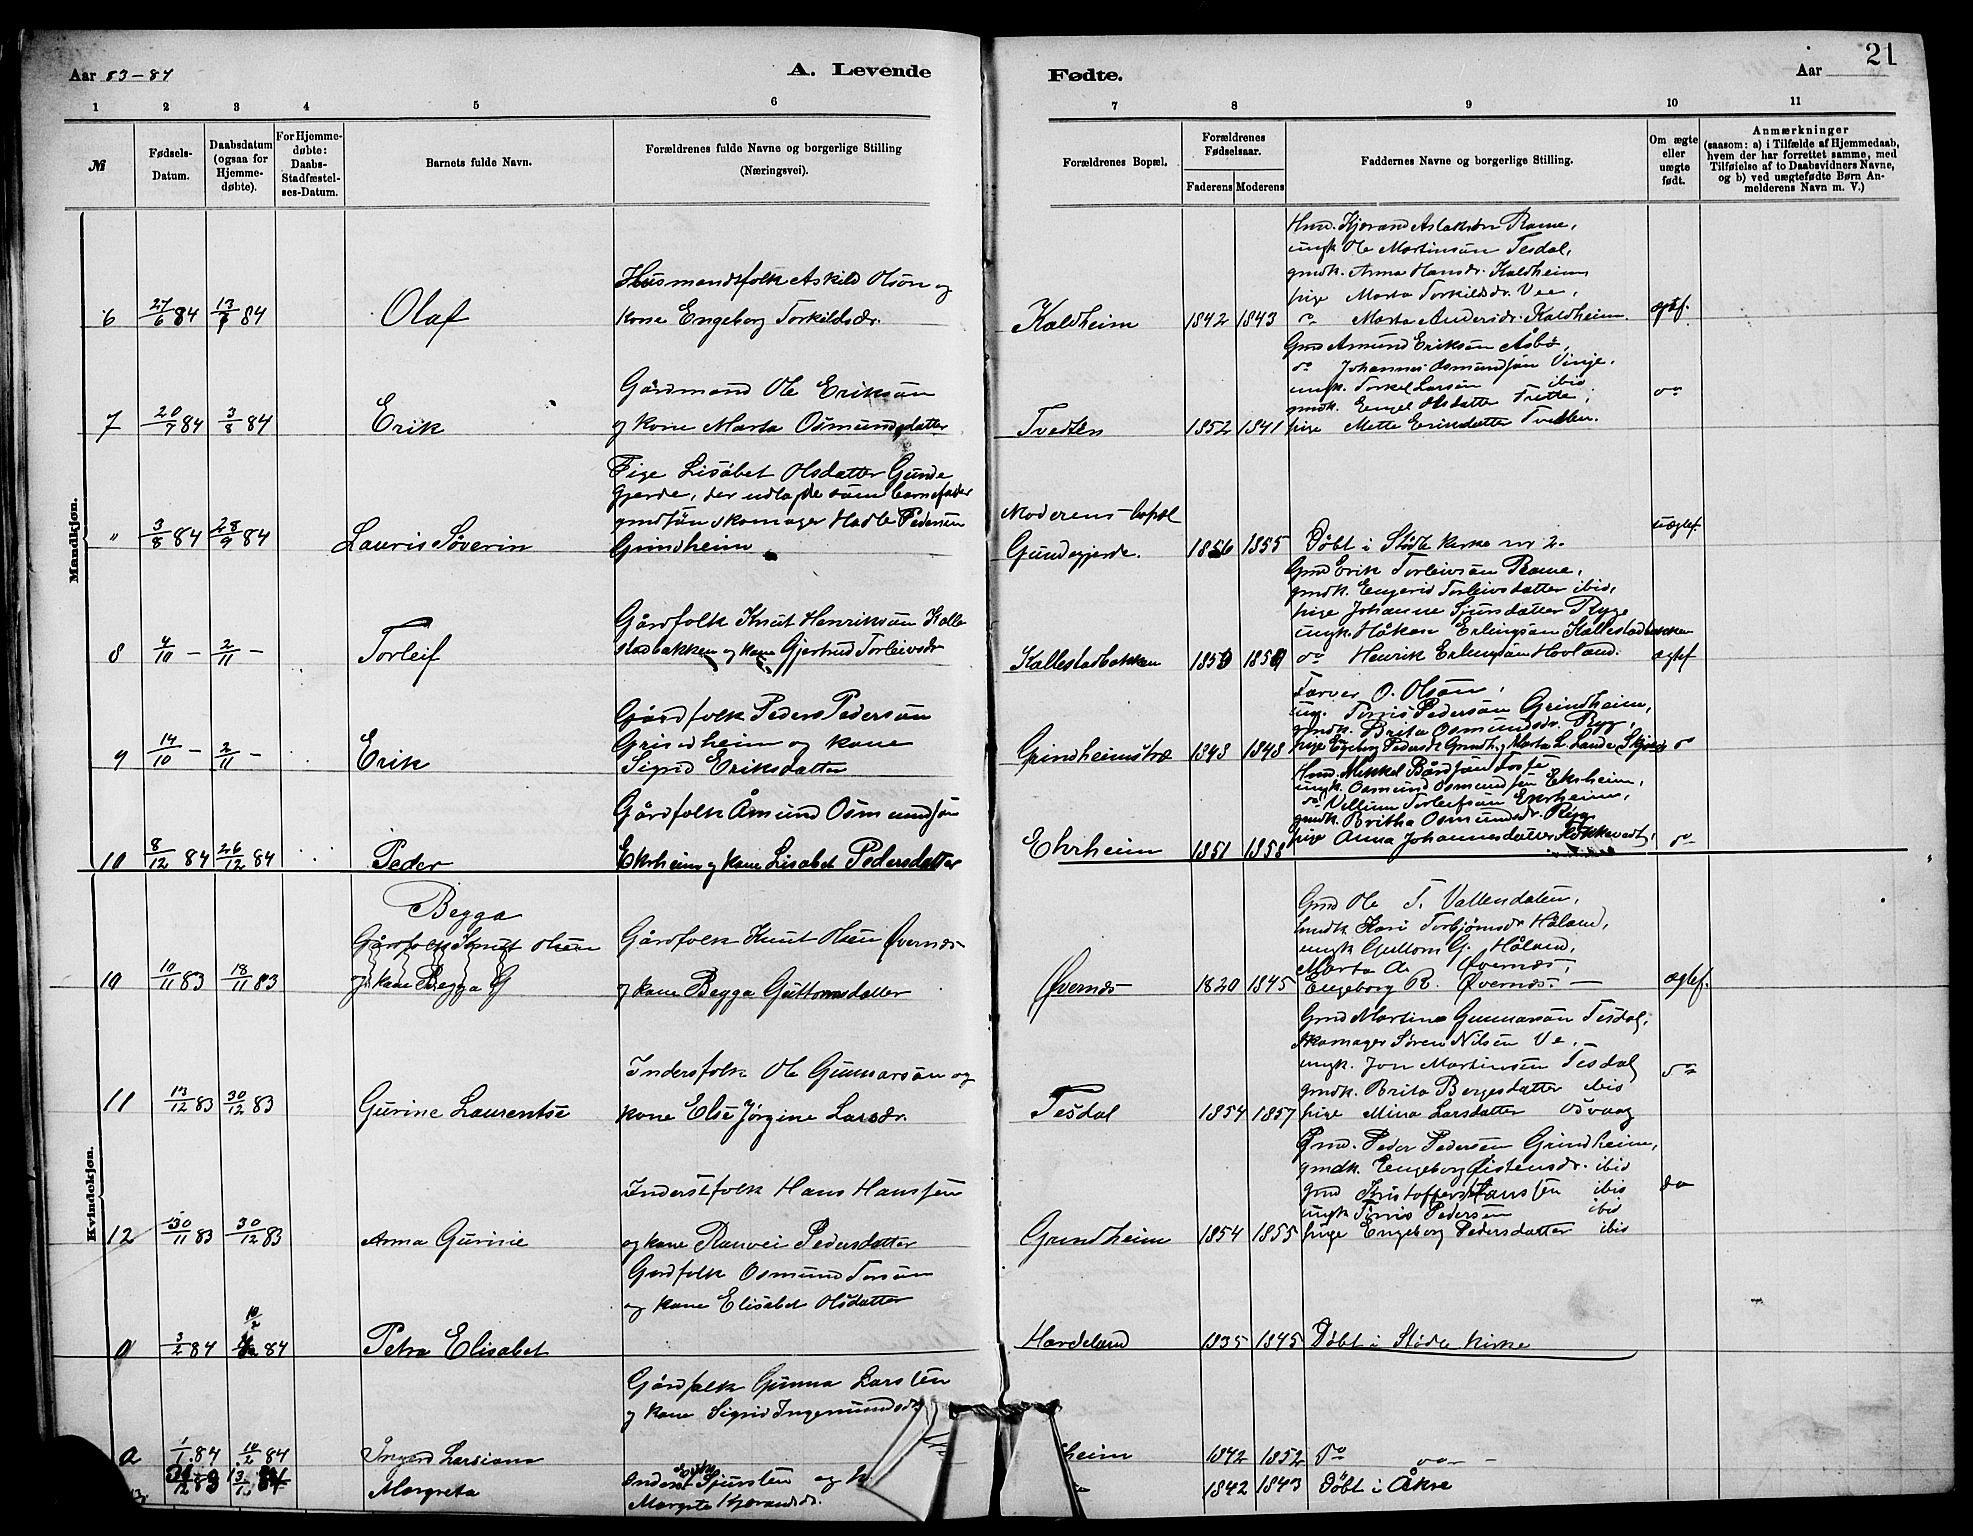 Aar 83-84
A. Levende
Fødte.
Aar
21
1 2 3 4 5 6 7 8 9 10 11
№
Fødsels-
Datum.
Daabsdatum
(ogsaa for
Hjemme-
døbte).
For Hjemme-
døbte:
Daabs-
Stadfæstel-
ses-Datum.
Barnets fulde Navn.
Forældrenes fulde Navne og borgerlige Stilling
(Næringsvei).
Forældrenes Bopæl.
Forældrenes
Fødselsaar.
Faderens Moderens
Faddernes Navne og borgerlige Stilling.
Om ægte
eller
uægte
født.
Anmærkninger
(saasom: a) i Tilfælde af Hjemmedaab,
hvem der har forrettet samme, med
Tilføielse af to Daabsvidners Navne,
og b) ved uægtefødte Børn An-
melderens Navn m. V.)
Mandkjøn.
6 27/6 84 13/7 84 Olaf
Husmandsfolk Askild Olson og
kone Engeborg Torkildsdr.
Kaldheim 1842 1843
Hmd. Kjørand Aslaksøn Rame,
ungk. Ole Martinson Tesdal,
gmdk. Anna Hansdr. Kaldheim
pige Marta Torkildsdr. Vee,
do Marta Andersdr. Kaldheim.
ægtef.
7 20/7 84 3/8 84 Erik
Gårdmand Ole Erikson
og kone Marta Osmundsdatter
Tvedten 1852 1841
Gmd Amund Erikson Åsbø,
do Johannes Osmundsøn Vinje,
ungk. Torkel Larsen ibid
gmdk. Engel Olsdatter Frette,
pige Mette Eriksdatter Tvedten.
do
" 3/8 84 28/9 84 Lauris Søverin
Pige Lisabet Olsdatter Gunde
gjerde, der udlagde som barnefader
gmdsøn skomager Hadle Pedersen
Grindheim
Moderens bopæl
Gundegjerde. 1856 1855 Døbt i Stødle kirke nr 2.
uægtef.
8 4/10 - 2/11 - Torleif
Gårdfolk Knut Henrikson Kalle
stadbakken og kone Gjertrud Torleivsdr
Kallestadbakken 1850 1850
Gmd Erik Torleivson Rame,
gmdk. Engerid Torleivsdatter ibid,
pige Johanne Sjursdatter Ryge
ungk. Håkon Erlingson Kallestadbakken
do Henrik Erlingson Hovland.
ægtef
9 14/10 - 2/11 - Erik
Gårdfolk Peder Pederson
Grindheim og kone
Sigrid Eriksdatter
Grindheimstræ 1848 1848
Farver O. Olson,
ung. Torris Pederson Grindheim,
gmdk. Brita Osmundsdr. Ryg,
pige Engeborg Pedersdr Grindh. og Marta L. Lande
do
10 8/12 84 26/12 84 Peder
Gårdfolk Åmund Osmundsøn
Ekrheim og kone Lisabet Pedersdatter
Ekrheim 1851 1858
Hmd. Mikkel Bårdsøn Fosse
ungk. Osmund Osmundsøn Ekrheim,
do Villum Torleifson Ekrheim,
gmdk. Britha Osmundsdr. Ryg
pige Anna Johannesdatter
do
Kvindekjøn.
10 10/11 83 18/11 83 Begga
Gårdfolk Knut Olsen
og kone Begga G
Gårdfolk Knut Olsen Øvernæs
og kone Begga Guttormsdatter
Øvernæs 1820 1845
Gmd Ole T. Vallendalen,
hmdk. Kari Torbjørnsdr Håland,
ungk. Guttorm G. Håland,
Marta A. Øvernæs,
Engeborg R. Øvernæs. -
ægtef.
11 13/12 83 30/12 83 Gurine Laurentse
Indersfolk Ole Gunnarson og
kone Else Jørgine Larsdr.
Tesdal 1854 1857
Gmd Martin Gunnarson Tesdal,
skomager Søren Nilsen Ve.
ungk. Jon Martinsen Tesdal
gmdk. Brita Børgesdatter ibid
pige Mina Larsdatter Osvaag
do
12 30/11 83 30/12 83 Anna Gurine
Inderstfolk Hans Hanssen
og kone Ranvei Pedersdatter
Grindheim 1854 1855
Gmd. Peder Pedersen Grindheim,
gmdk. Engeborg Øistensdr. ibid
gmd Kristoffer Hanssen ibid
ungk Torris Pedersen ibid
pige Engeborg Pedersdatter ibid
do
0 3/2 84 10/2 84 Petra Elisabet
Gårdfolk Osmund Torson
og kone Elisabet Olsdatter
Hardeland 1835 1845 Døbt i Stødle kirke
a 1/1 84 10/2 84 Ingerd Larsiana
Gårdfolk Gunna Larsen
og kone Sigrid Ingemundsdr
heim 1842 1852 do do -
31/12 83 13/1 84 Margreta
Inderst Sjursten og k
Margrete Kjørandsdr.
1842 1843 Døbt i Åkre